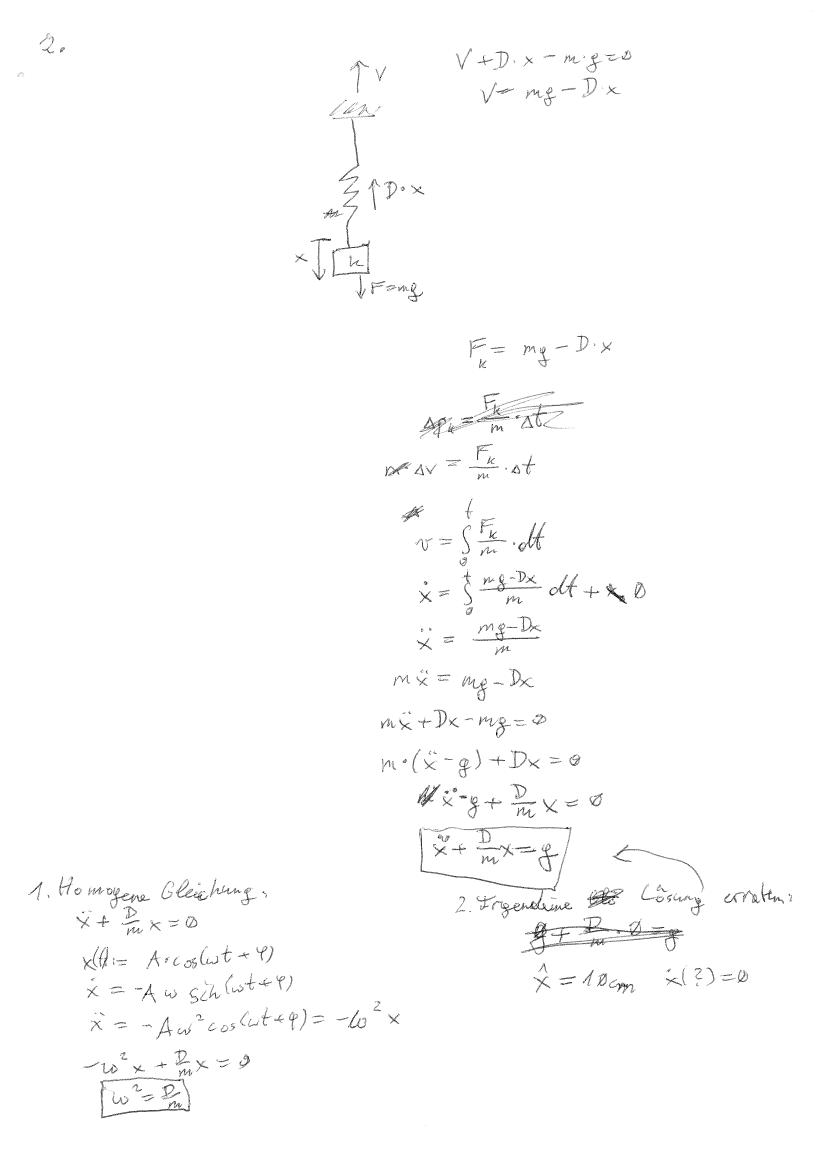 2.
V + D·x − m·g = 0
V = mg − D·x
↑ V
↑ D·x
x
k
↓ F = mg
F_k = mg − D·x
Δv = F_k/m · Δt
v = ∫₀ᵗ F_k/m · dt
ẋ = ∫₀ᵗ (mg − Dx)/m dt + 0
ẍ = (mg − Dx)/m
mẍ = mg − Dx
mẍ + Dx − mg = 0
m·(ẍ − g) + Dx = 0
ẍ − g + D/m x = 0
ẍ + D/m x = g
1. Homogene Gleichung:
ẍ + D/m x = 0
x(t) = A·cos(ωt + φ)
ẋ = −Aω sin(ωt + φ)
ẍ = −Aω² cos(ωt + φ) = −ω² x
−ω² x + D/m x = 0
ω² = D/m
2. Irgendeine Lösung erraten:
g + D/m · 0 = g
x̂ = 10cm ẋ(?) = 0